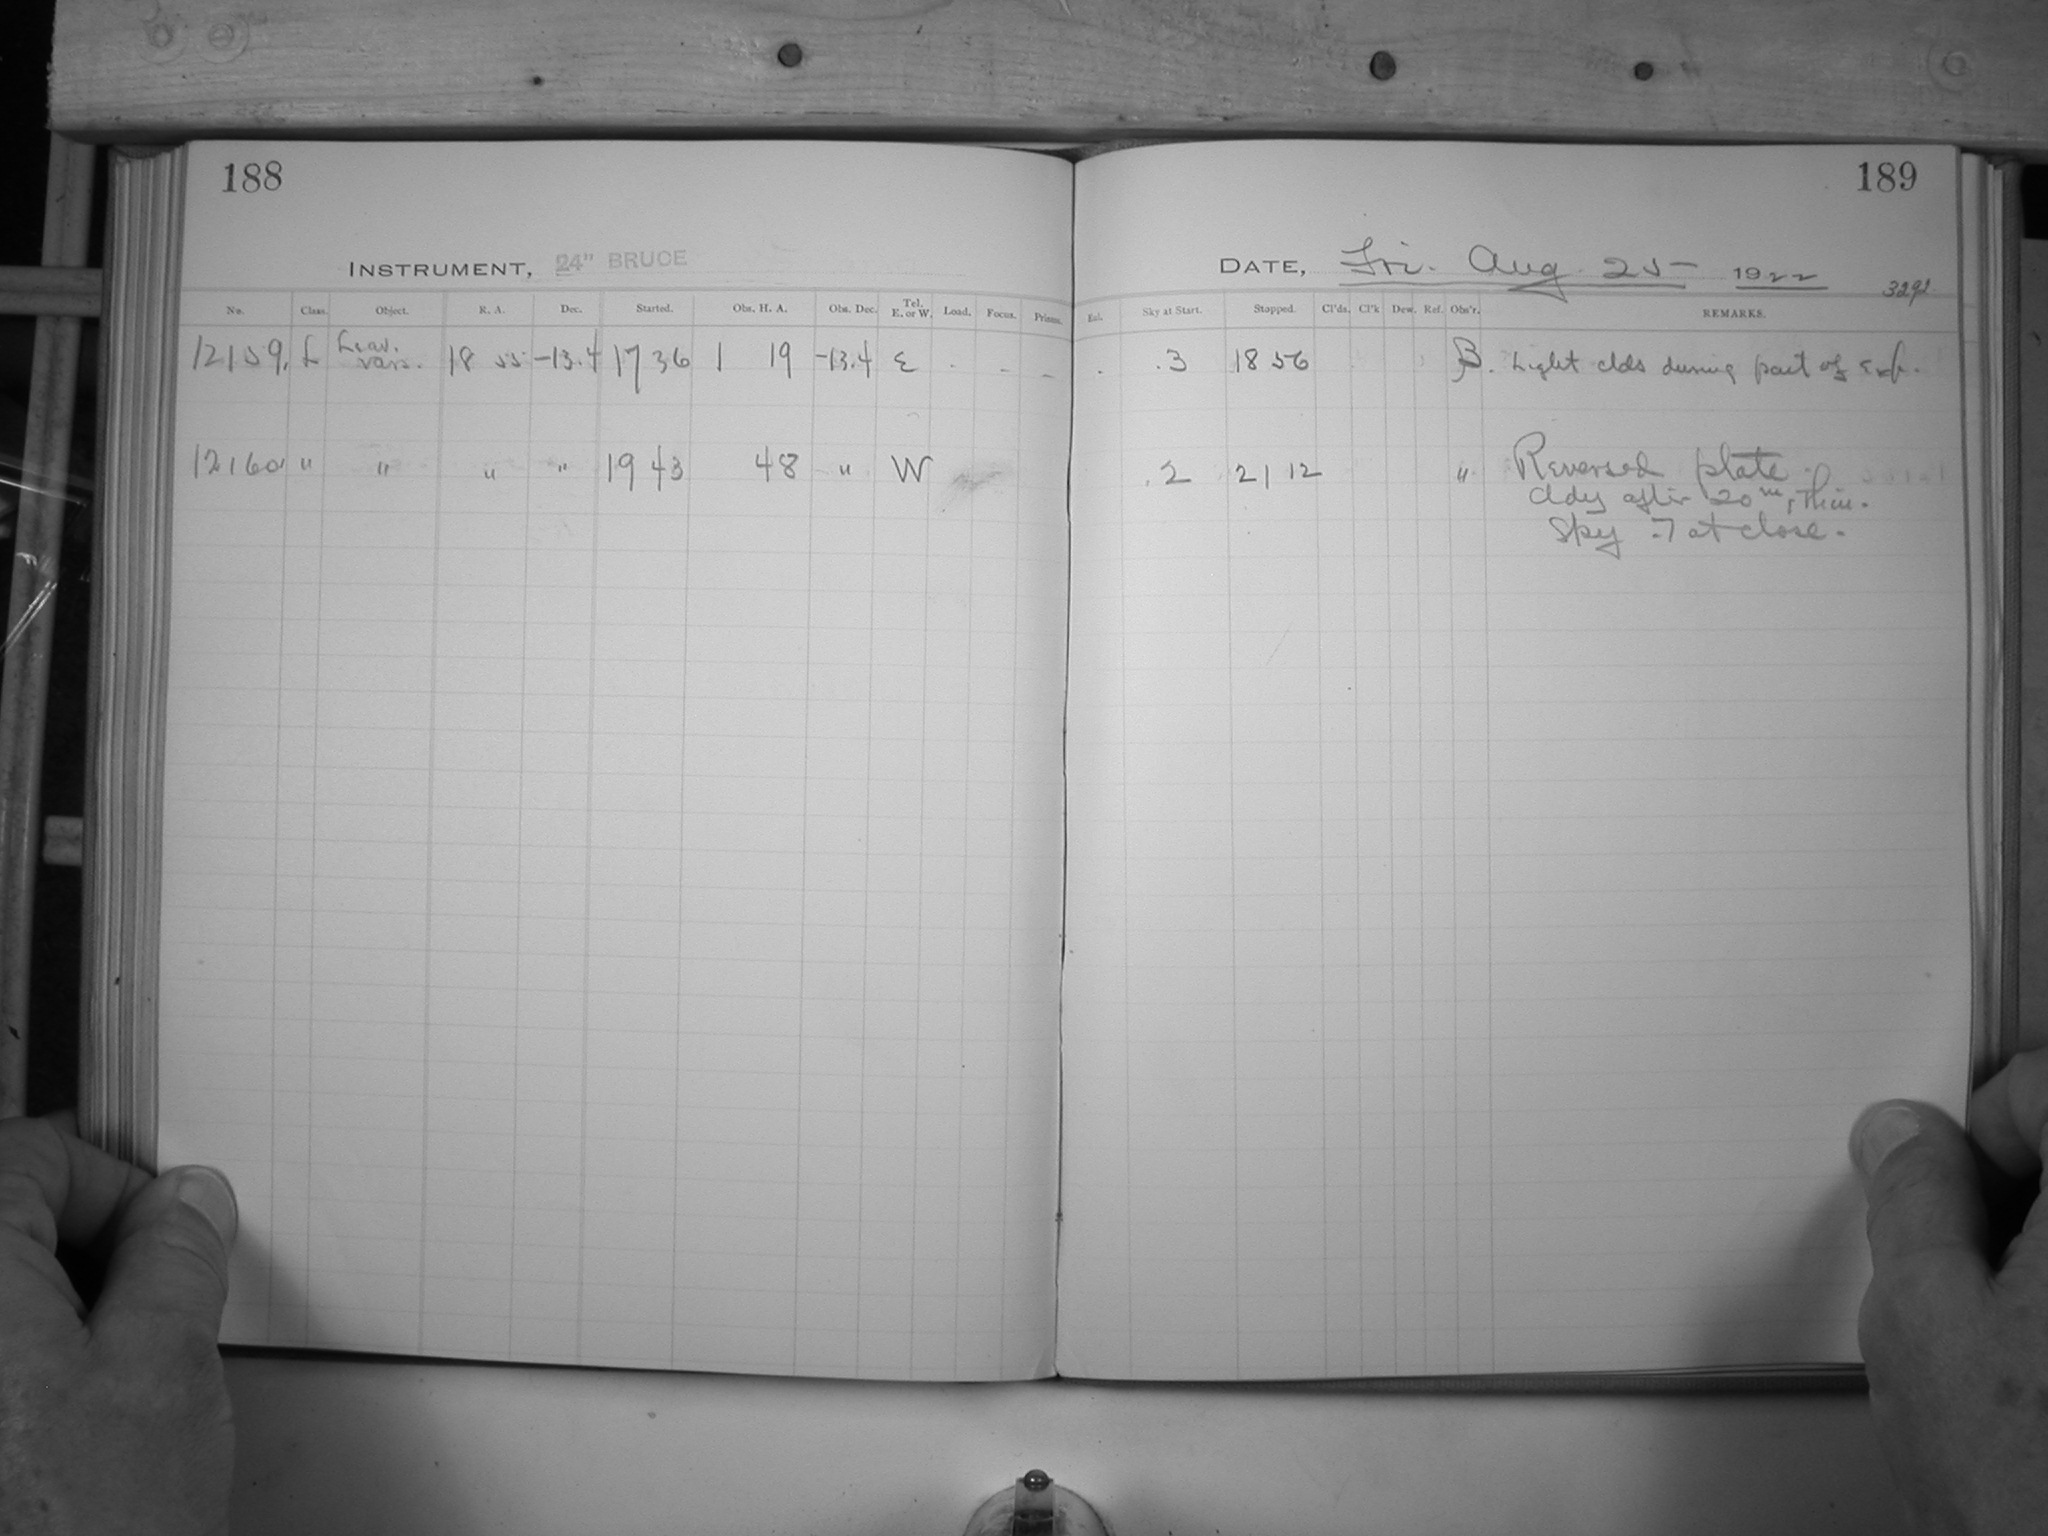 188
189
INSTRUMENT, 24" BRUCE
DATE, Fri. Aug 25 1922
3291
No. Class. Object. R. A. Dec. Started. Obs. H. A. Obs. Dec. Tel. E. or W. Load. Focus. Prisms. Eul. Sky at Start. Stopped. Cl'ds. Cl'k Dew. Ref. Obs'r. REMARKS.
12159. L Leav. vars. 18 55 -13.4 17 36 1 19 -13.4 E . - - . .3 18 56 B. Light clds during part of exp.
12160 " " " " 19 43 48 " W .2 21 12 " Reversed plate.
Cldy after 20m, thin.
Sky .7 at close.